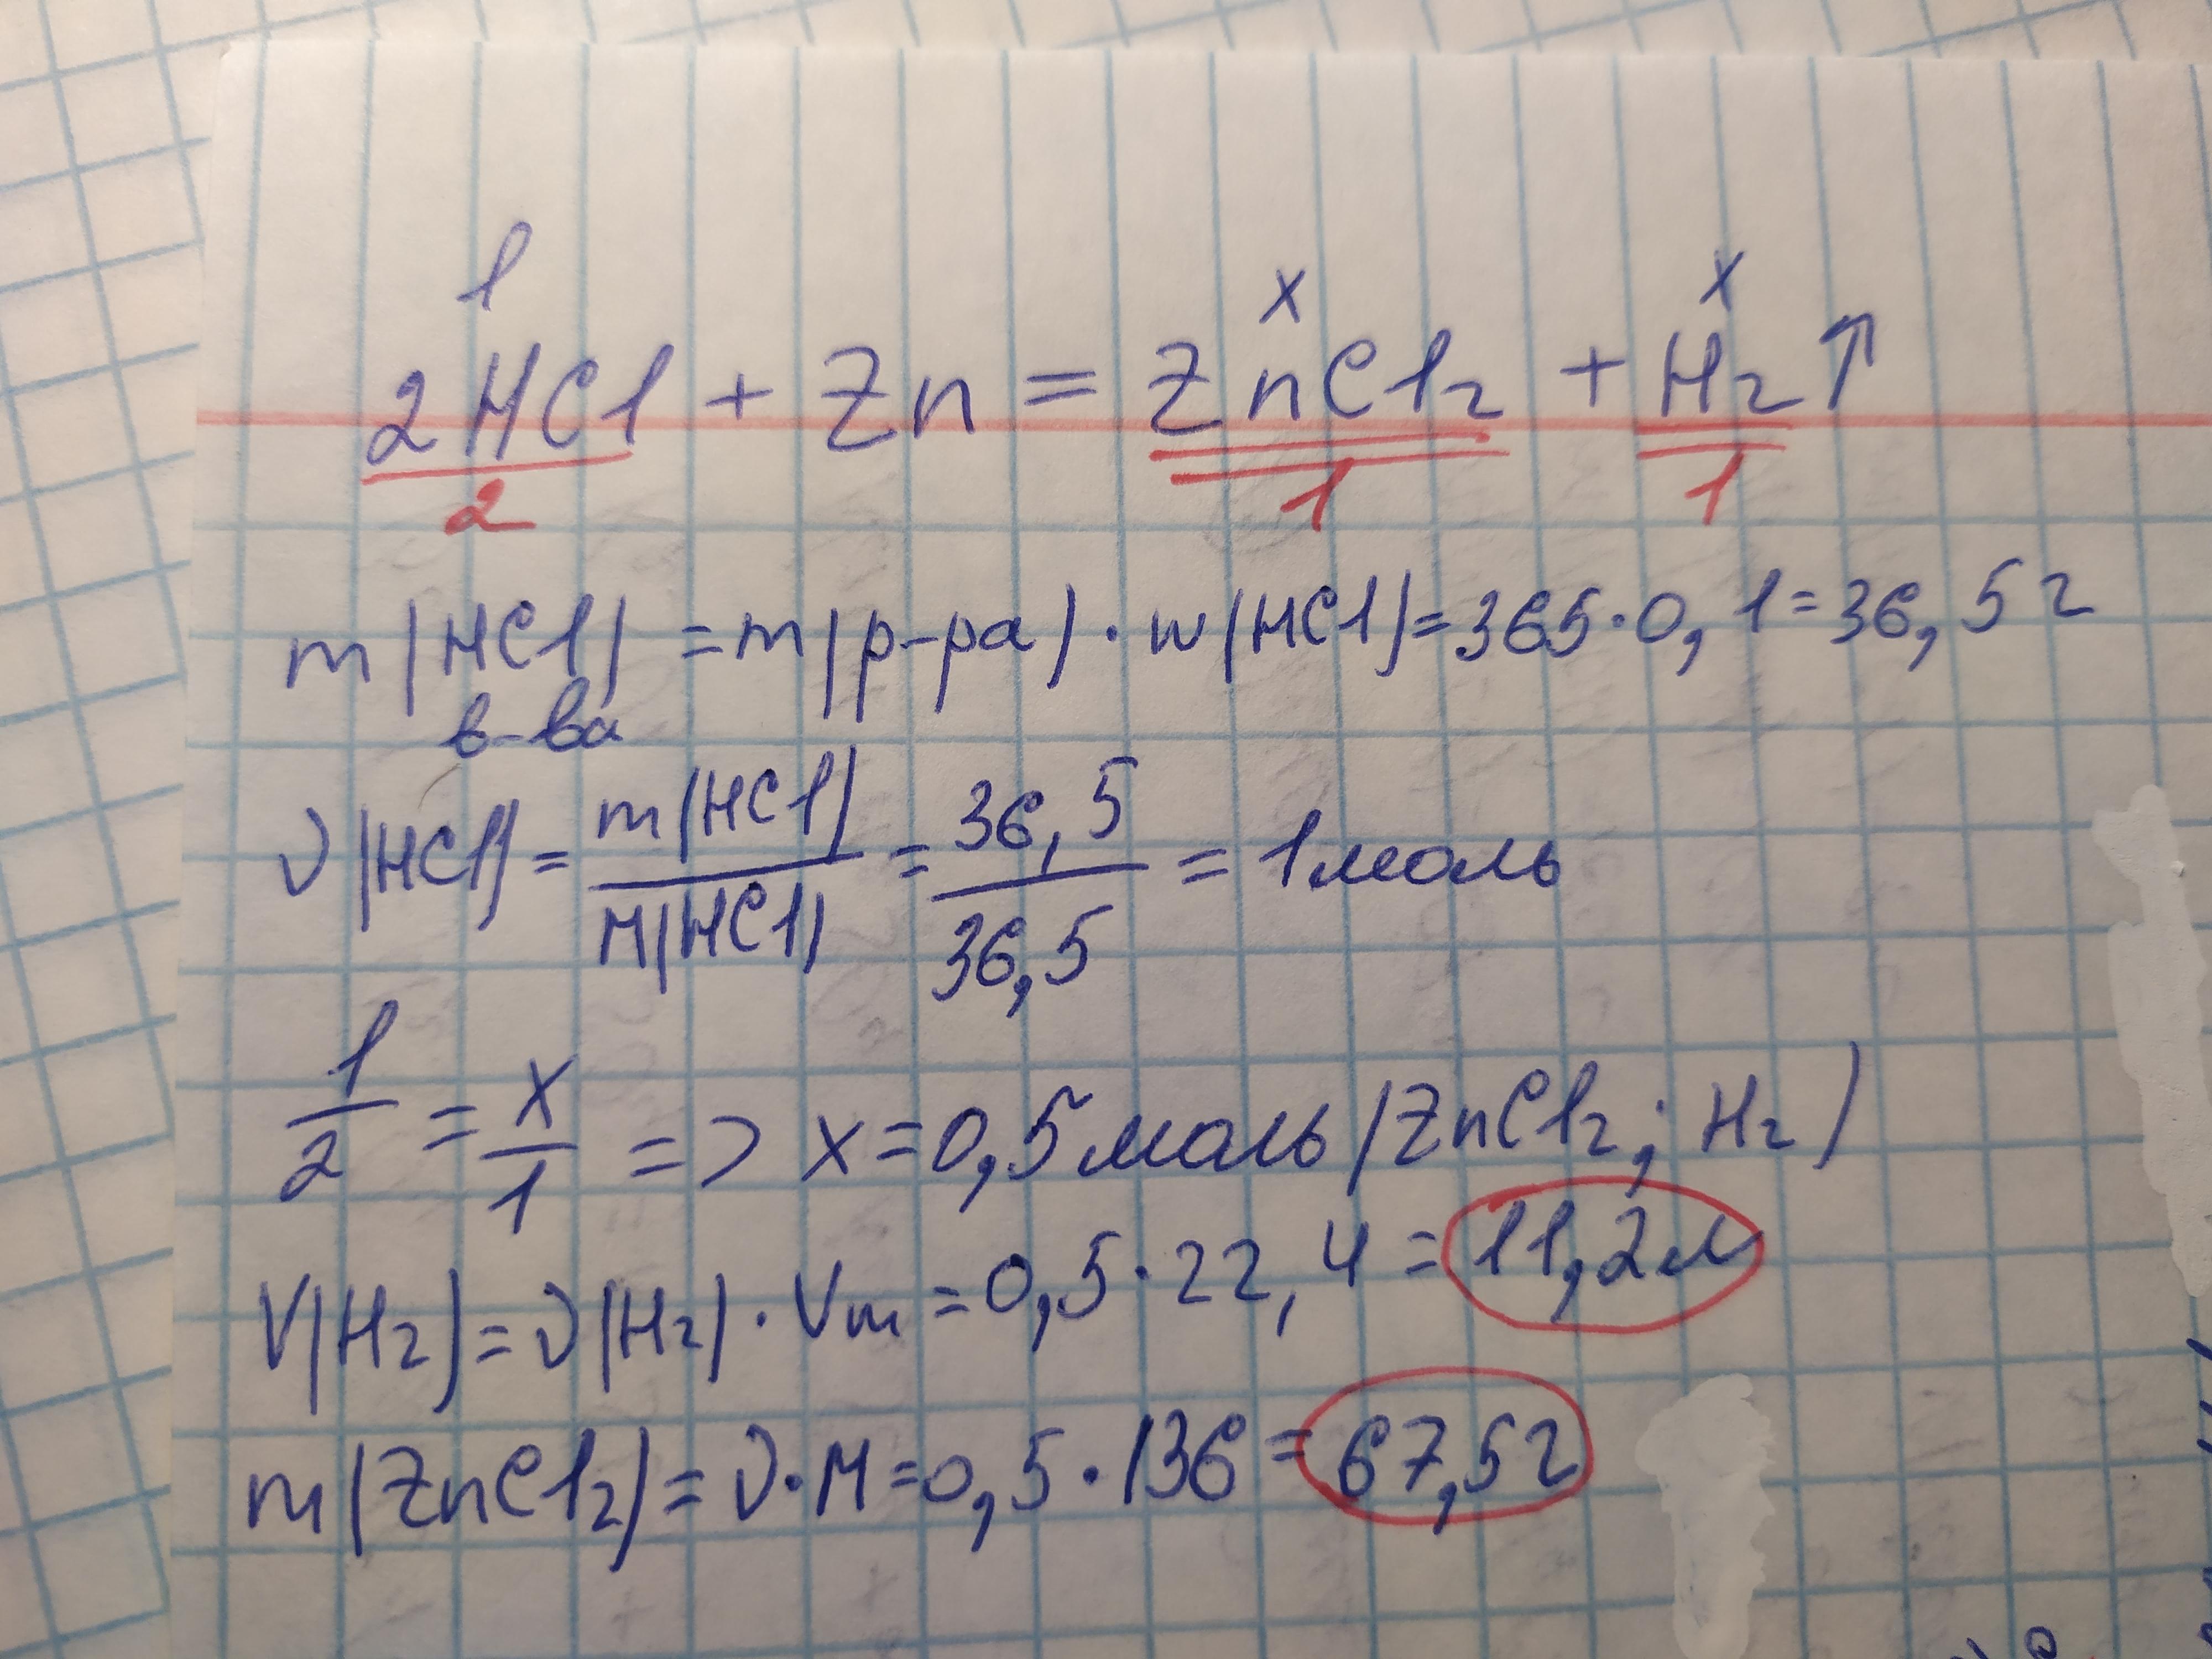 1 x x
2HCl + Zn = ZnCl₂ + H₂↑
2 1 1
m(HCl) = m(р-ра) · w(HCl) = 365 · 0,1 = 36,5 г
в-ва
ν(HCl) = m(HCl)/M(HCl) = 36,5/36,5 = 1 моль
1/2 = x/1 => x = 0,5 моль (ZnCl₂; H₂)
V(H₂) = ν(H₂) · Vm = 0,5 · 22,4 = 11,2 л
m(ZnCl₂) = ν · M = 0,5 · 136 = 67,5 г